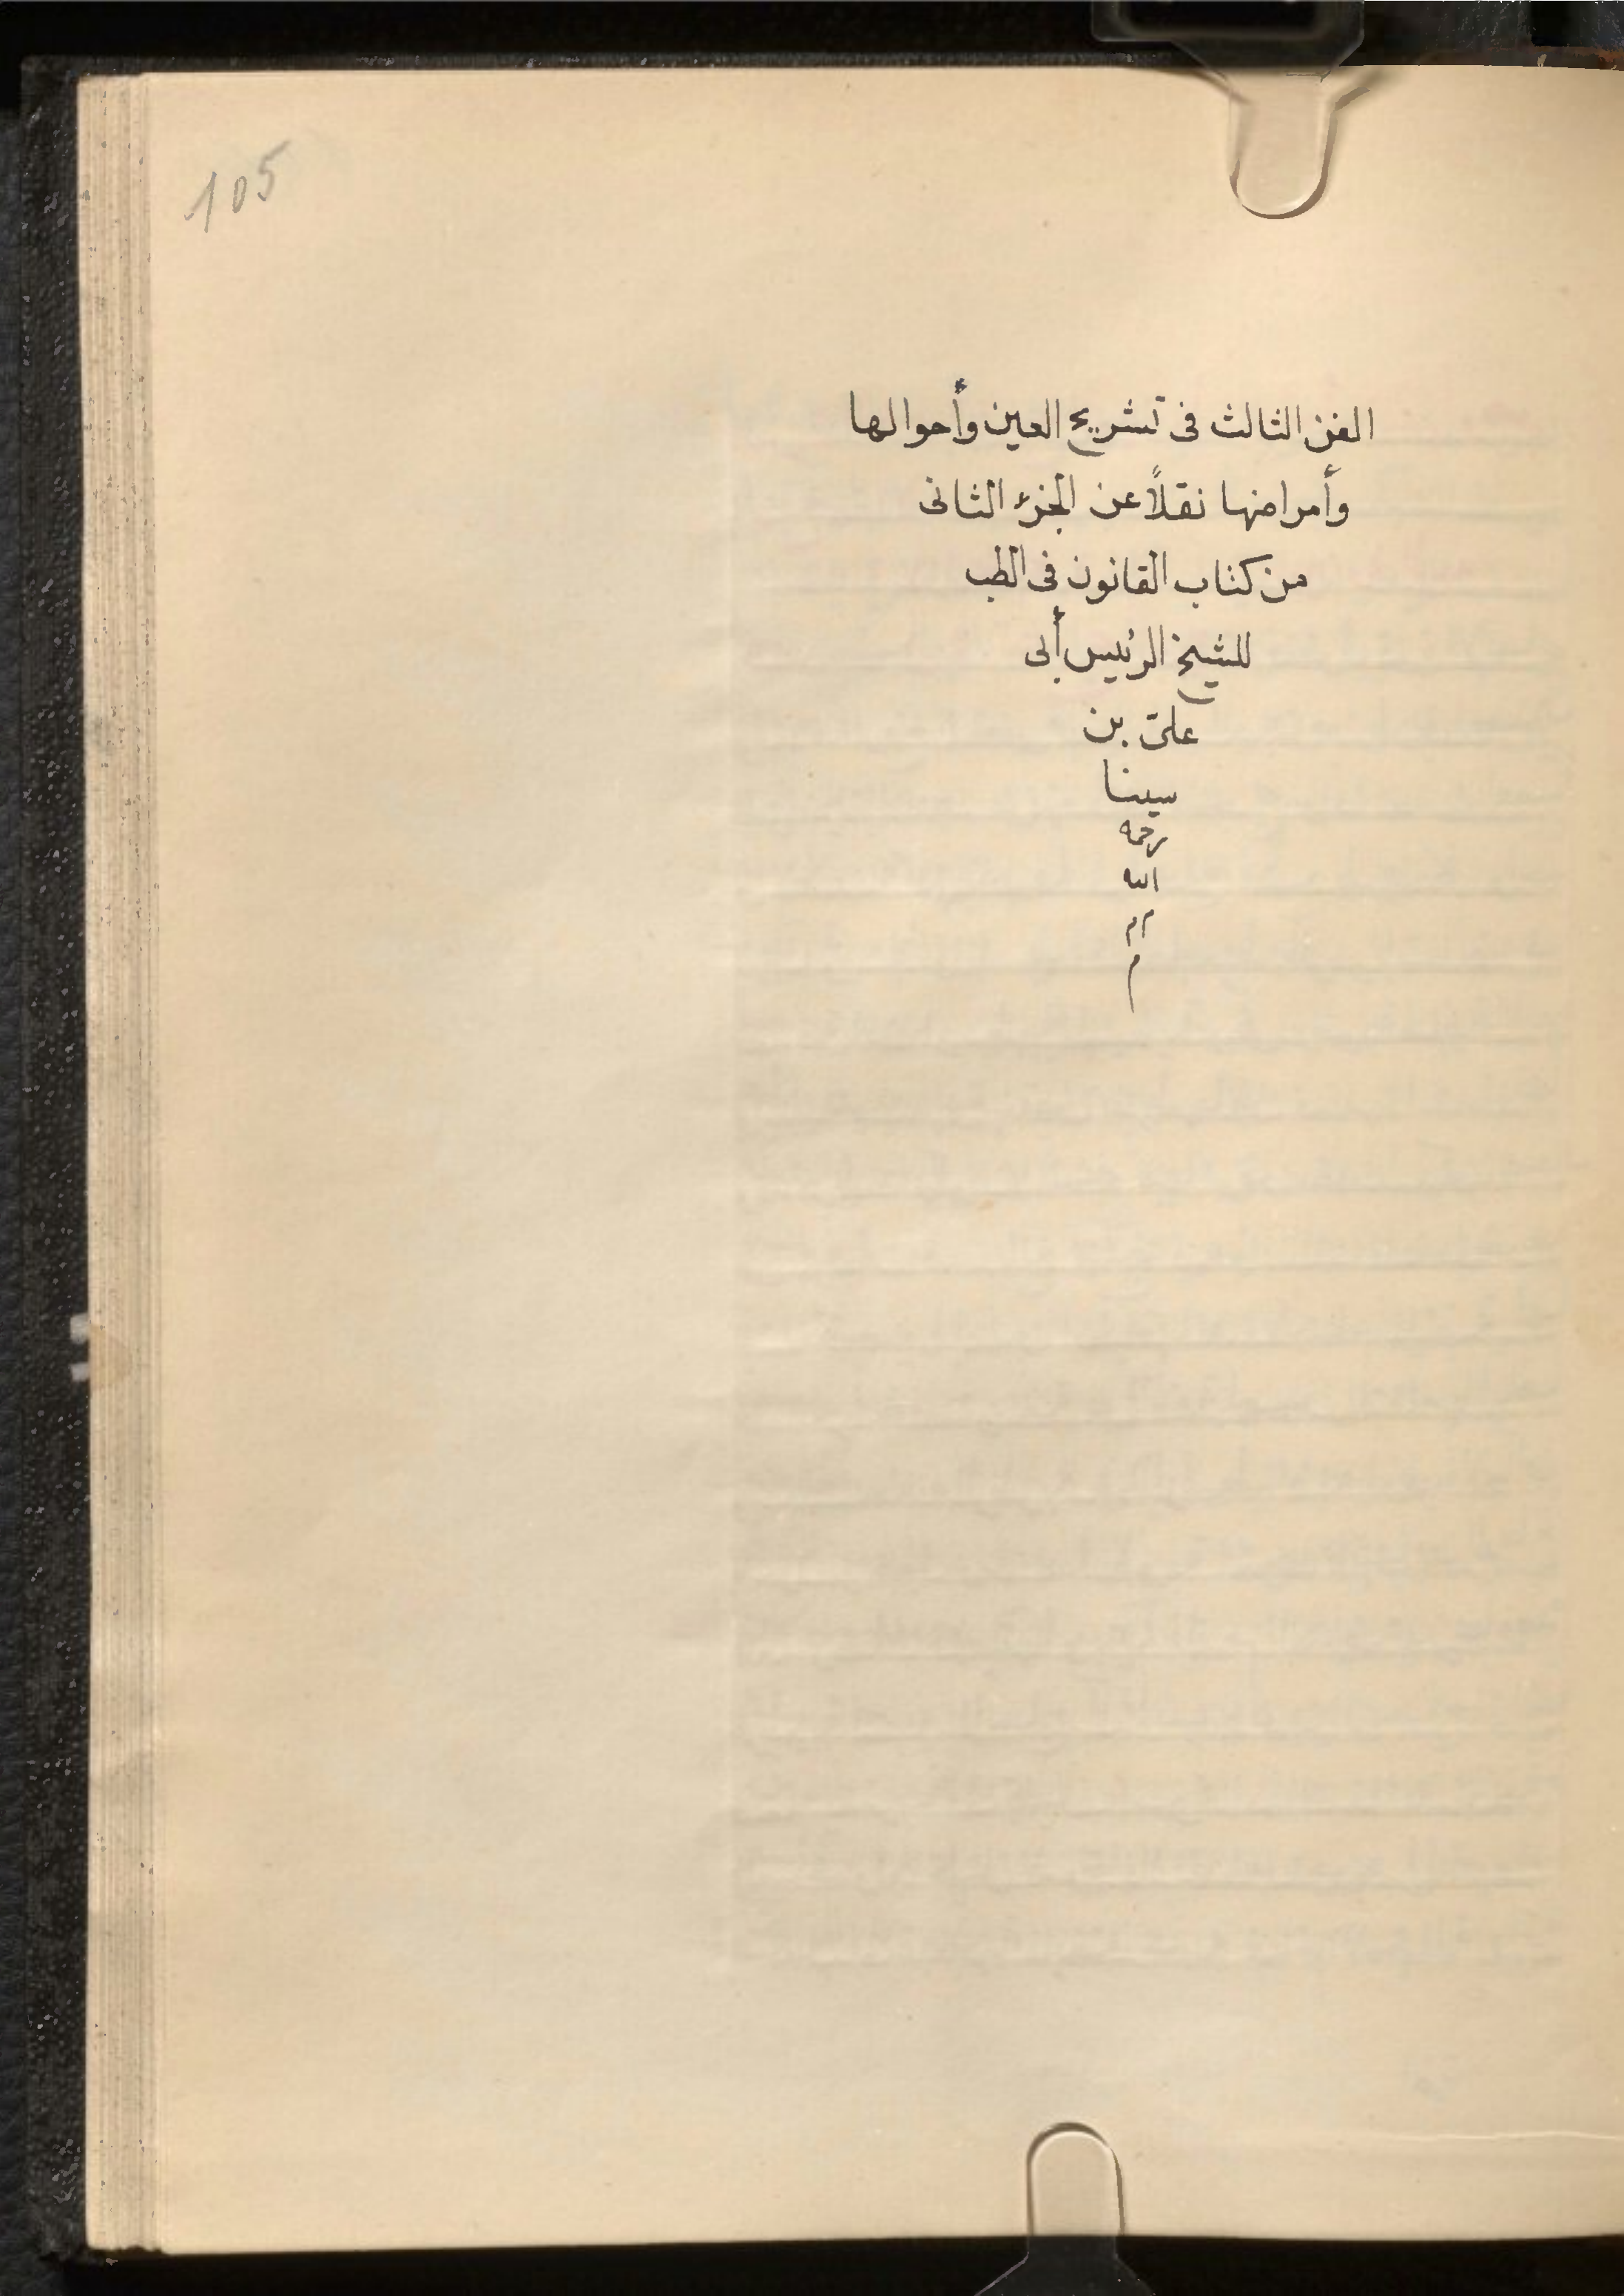 105
الفن الثالث فى تشريح العين وأحوالها
وأمراضها نقلاً عن الجزء الثانى
من كتاب القانون فى الطب
للشيخ الرئيس أبى
على بن
سينا
رحمه
الله
م م
م